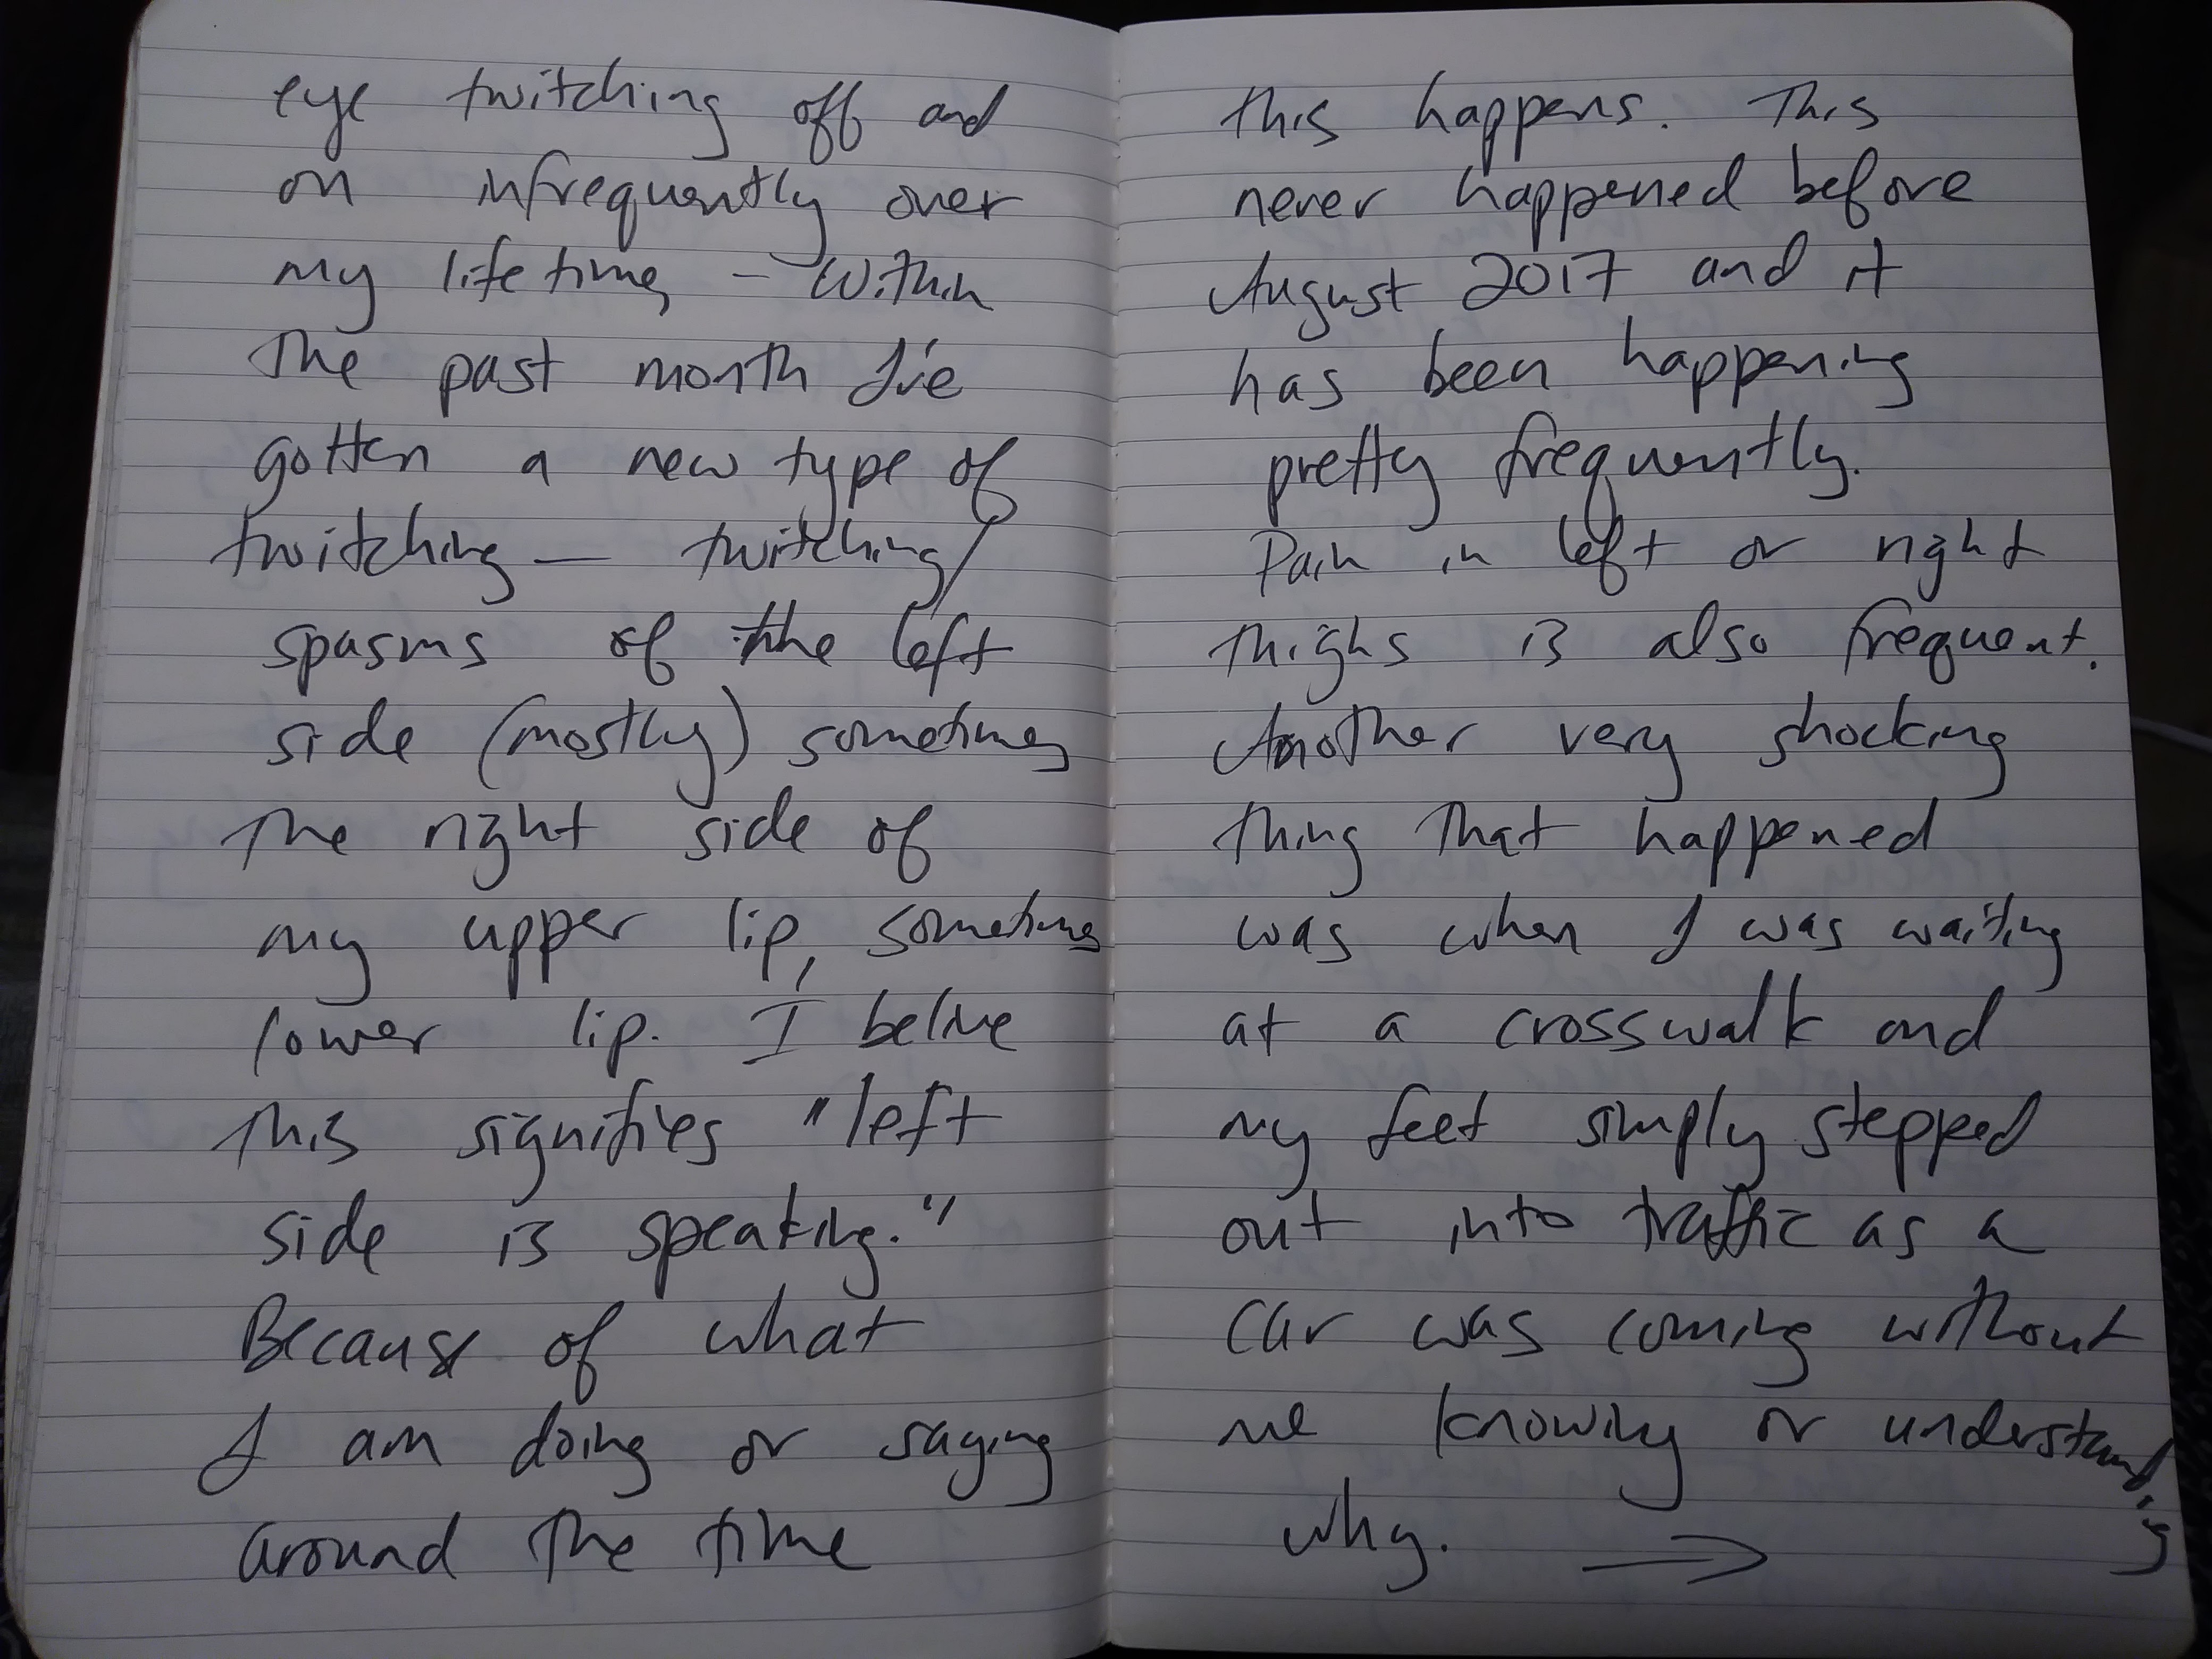 eye twitching off and
on infrequently over
my lifetime, - Within
the past month I've
gotten a new type of
twitching — twitching/
spasms of the left
side (mostly) sometimes
the right side of
my upper lip, sometimes
lower lip. I belive
this signifies "left
side is speaking."
Because of what
I am doing or saying
around the time
this happens. This
never happened before
August 2017 and it
has been happening
pretty frequently.
Pain in left or right
thighs is also frequent.
Another very shocking
thing that happened
was when I was waiting
at a crosswalk and
my feet simply stepped
out into traffic as a
car was coming without
me knowing or understanding
why. →